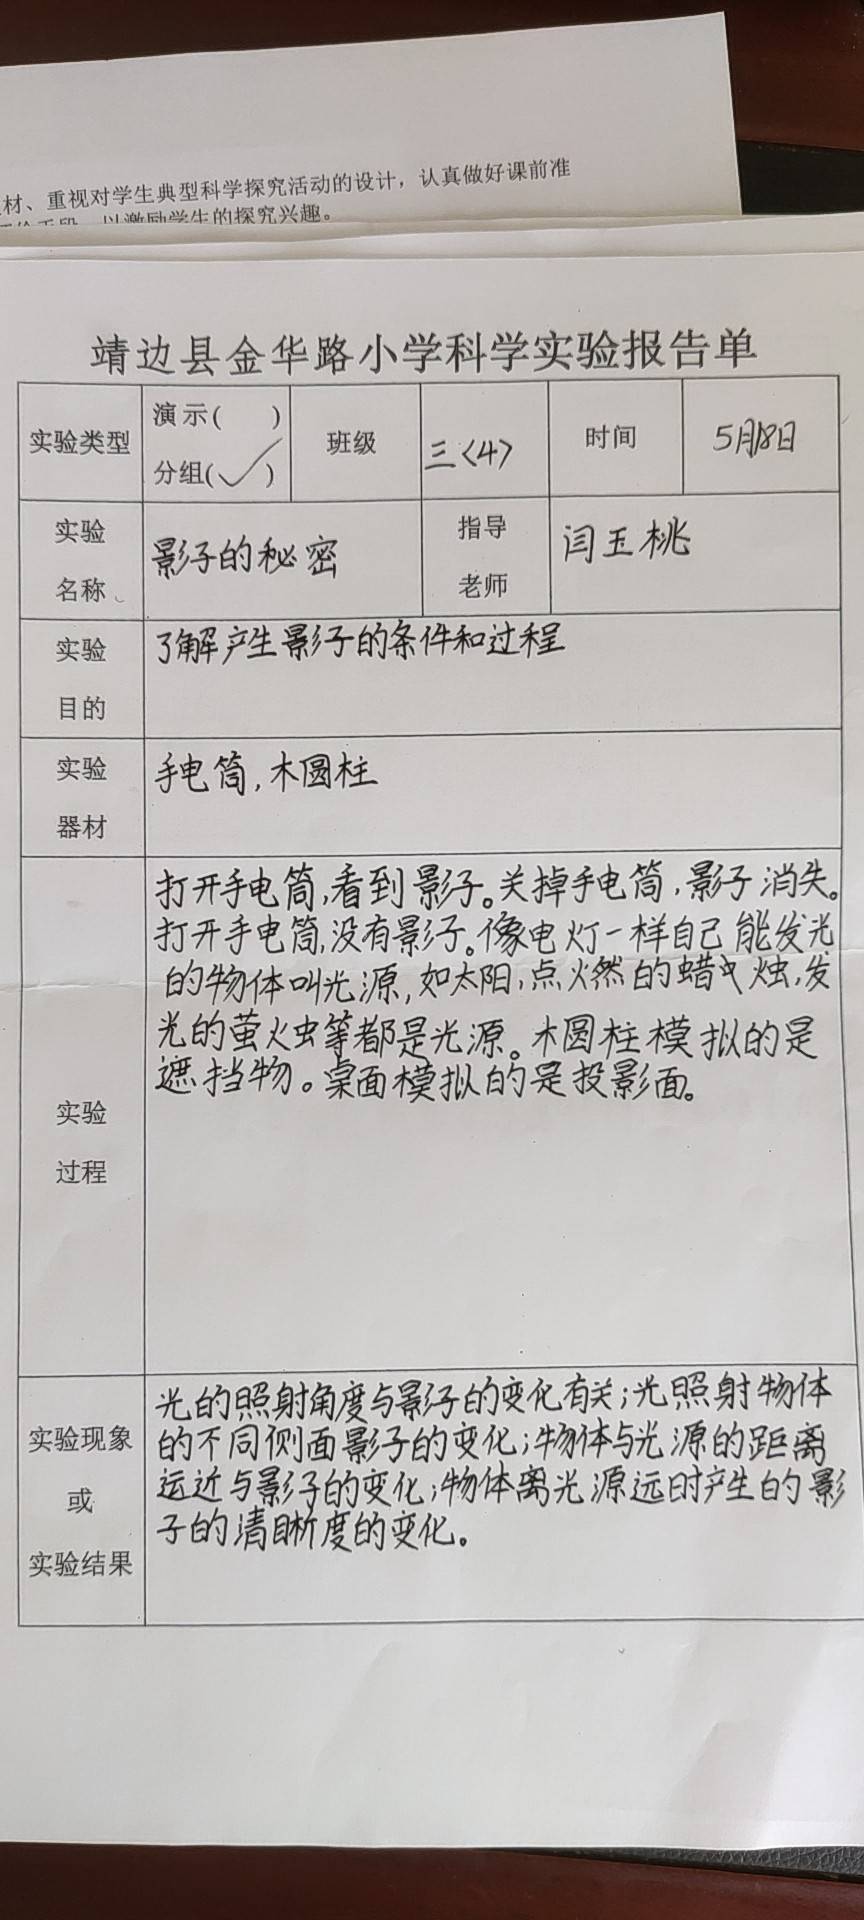 材、重视对学生典型科学探究活动的设计，认真做好课前准
以激励学生的探究兴趣。
靖边县金华路小学科学实验报告单
实验类型 演示( ) 分组(✓) 班级 三<4> 时间 5月18日
实验名称 影子的秘密 指导老师 闫玉桃
实验目的 了解产生影子的条件和过程
实验器材 手电筒,木圆柱
实验过程
打开手电筒,看到影子。关掉手电筒,影子消失。
打开手电筒,没有影子。像电灯一样自己能发光
的物体叫光源,如太阳,点火然的蜡烛,发
光的萤火虫等都是光源。木圆柱模拟的是
遮挡物。桌面模拟的是投影面。
实验现象或实验结果
光的照射角度与影子的变化有关;光照射物体
的不同侧面影子的变化;物体与光源的距离
远近与影子的变化;物体离光源远时产生的影
子的清晰度的变化。